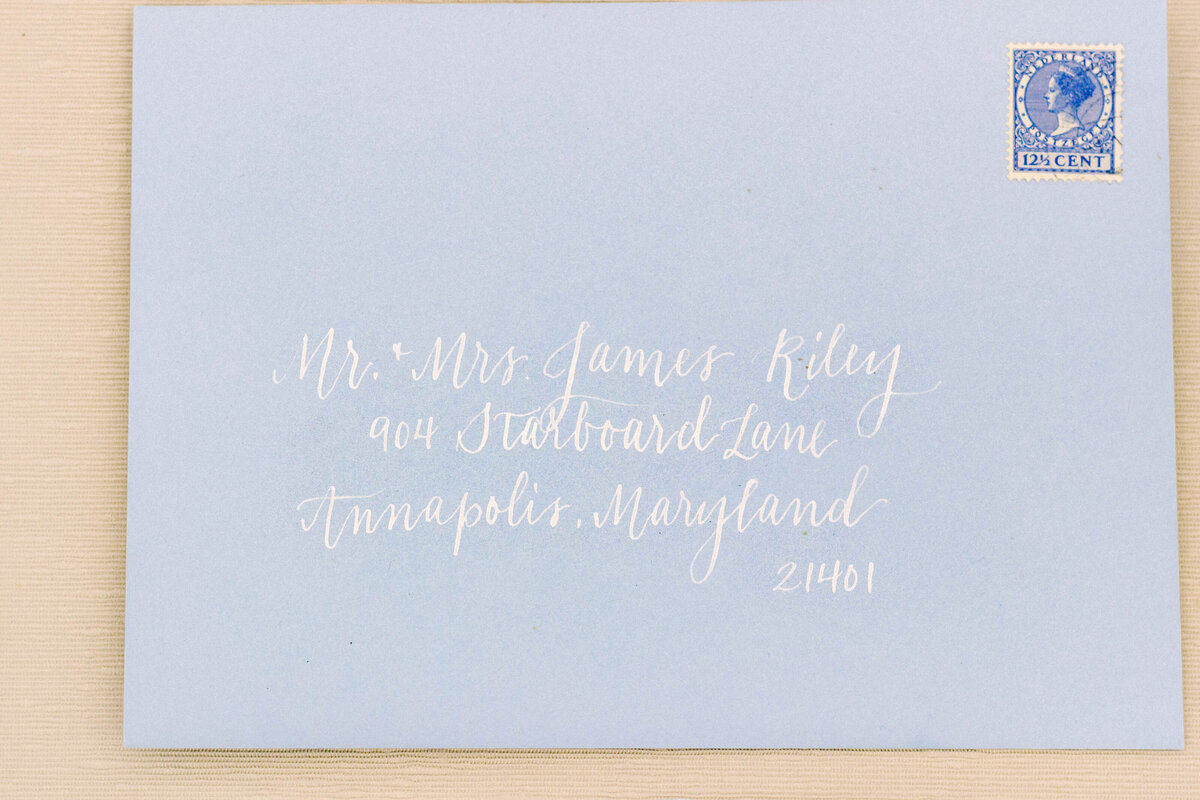 NEDERLAND
POSTZEGEL
12½ CENT
Mr. + Mrs. James Riley
904 Starboard Lane
Annapolis, Maryland
21401